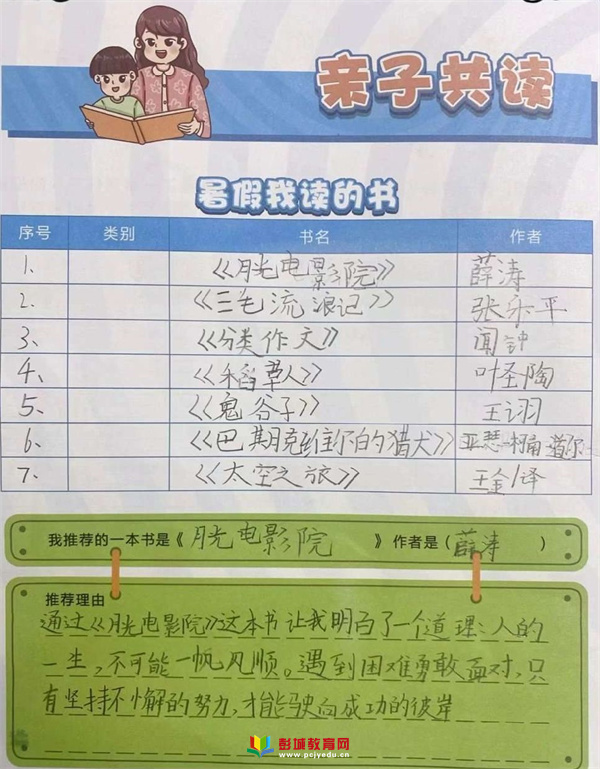 亲子共读
暑假我读的书
序号 类别 书名 作者
1、 《月光电影院》 薛涛
2、 《三毛流浪记》 张乐平
3、 《分类作文》 闻钟
4、 《稻草人》 叶圣陶
5、 《鬼谷子》 王诩
6、 《巴斯克维尔的猎犬》 亚瑟·柯南道尔
7、 《太空之旅》
我推荐的一本书是《月光电影院》作者是(薛涛)
推荐理由
通过《月光电影院》这本书让我明白了一个道理:人的
一生,不可能一帆风顺。遇到困难勇敢面对,只
有坚持不懈的努力,才能驶向成功的彼岸
彭城教育网
www.pcjyedu.cn